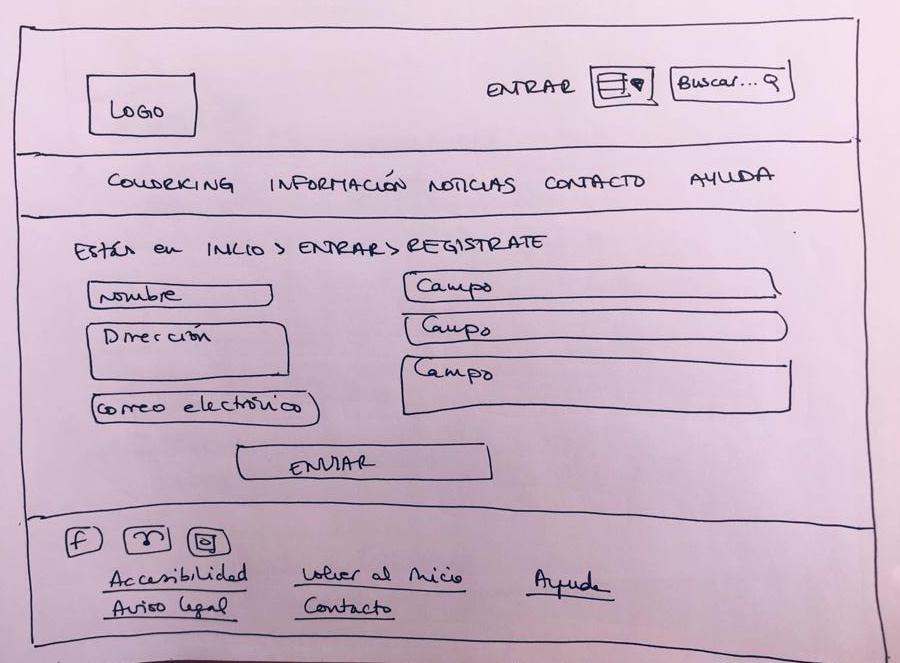 LOGO
ENTRAR Buscar...
COWORKING INFORMACIÓN NOTICIAS CONTACTO AYUDA
Estás en INICIO > ENTRAR > REGISTRATE
nombre
Dirección
correo electrónico
Campo
Campo
Campo
ENVIAR
f
Accesibilidad Volver al inicio Ayuda
Aviso legal Contacto